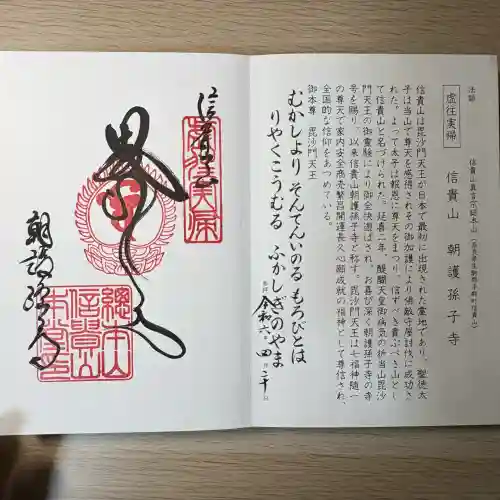 法話
信貴山真言宗総本山(奈良県生駒郡平群町信貴山)
虚往実帰
信貴山 朝護孫子寺
信貴山は毘沙門天王が日本で最初に出現された霊地であり、聖徳太
子は当山で尊天を感得されその御加護により仏敵守屋討伐に成功さ
れた。よって太子は報恩に尊天をまつり、信ずべき貴ぶべき山とし
て信貴山と名づけられた。延喜二年、醍醐天皇御病気の折当山毘沙
門天王の御霊験により御全快遊ばされ、お喜び深く朝護孫子寺の寺
号を賜り、以来信貴山朝護孫子寺と称す。毘沙門天王は七福神随一
の尊天で家内安全商売繁昌開運長久心願成就の福神として尊信され、
全国的な信仰をあつめている。
御本尊 毘沙門天王
むかしより そんてんいのる もろびとは
りやくこうむる ふかしぎのやま
令和六年四月二十日
信貴山
虚往実帰
朝護孫子寺
總本山
信貴山